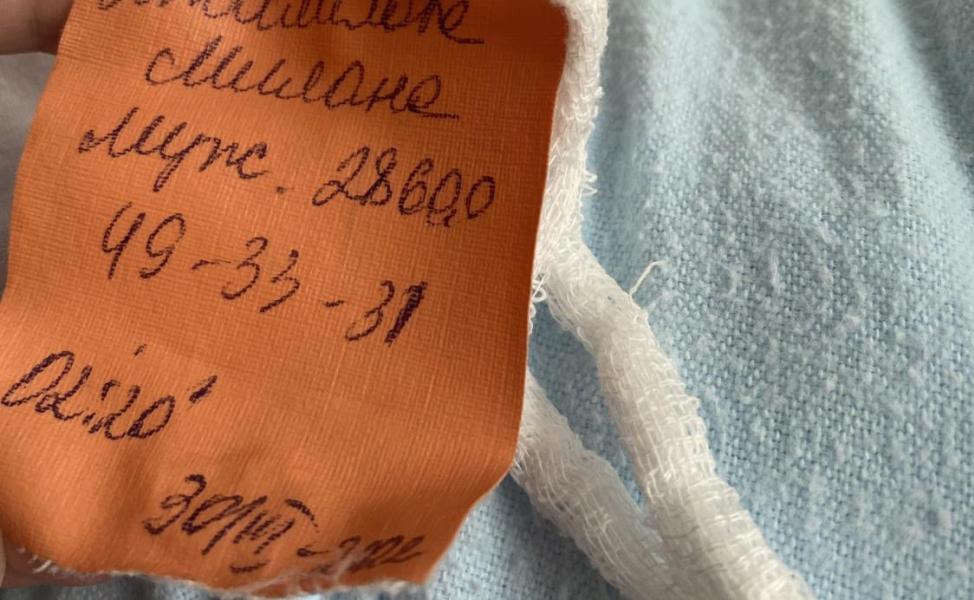 Милане
Муж. 2860,0
49-33-31
02:20'
30/III-2022